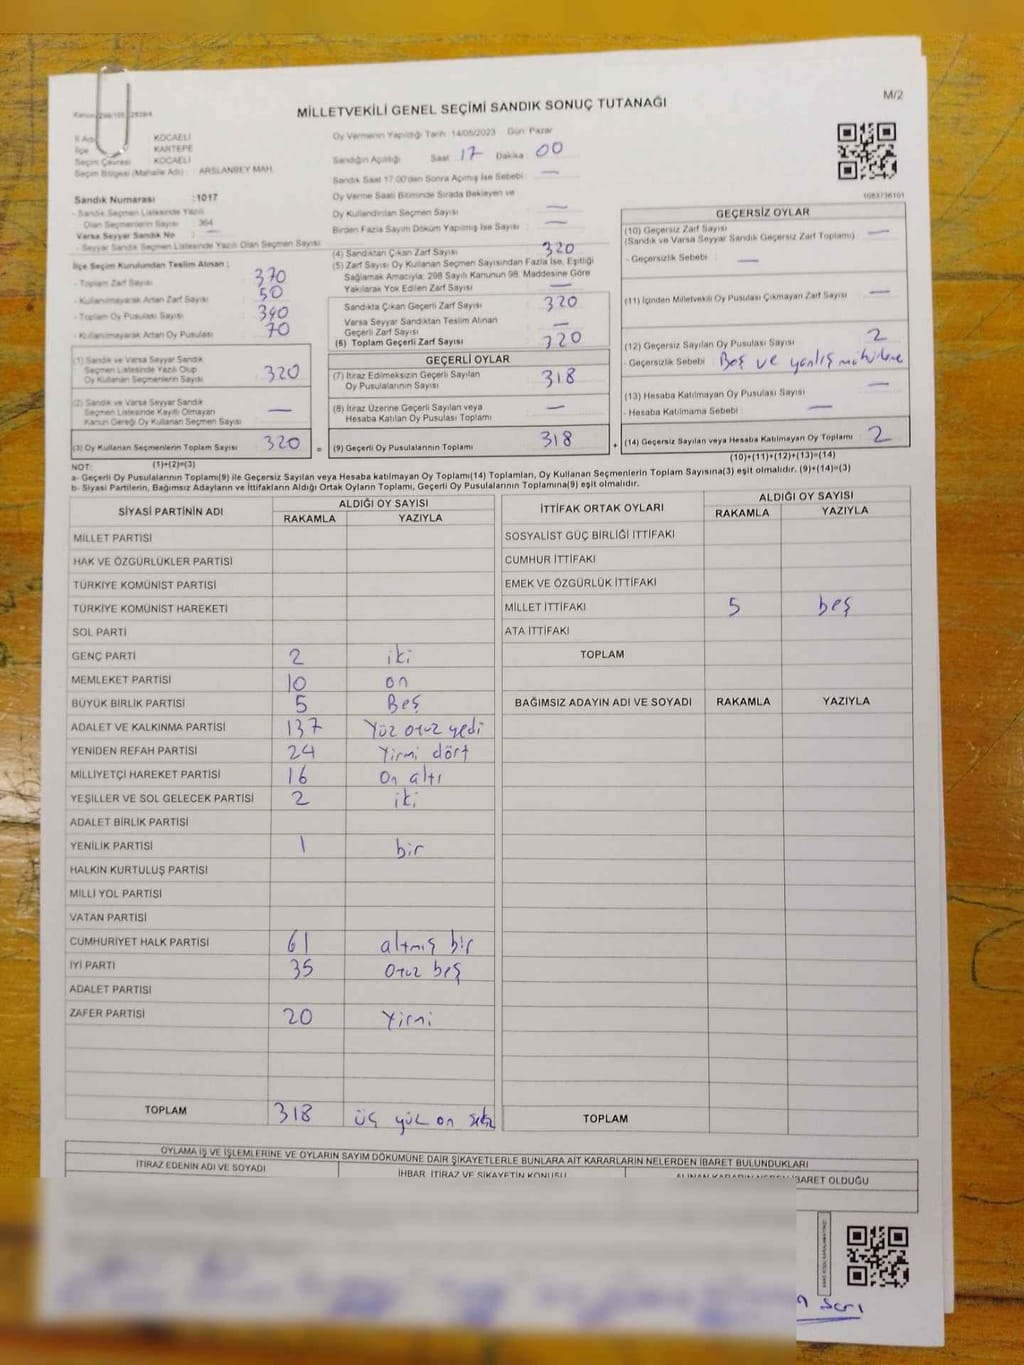 M/2
MİLLETVEKİLİ GENEL SEÇİMİ SANDIK SONUÇ TUTANAĞI
İl Adı KOCAELİ
İlçe KARTEPE
Seçim Çevresi KOCAELİ
Seçim Bölgesi (Mahalle Adı) : ARSLANBEY MAH.
Oy Vermenin Yapıldığı Tarih :14/05/2023 Gün Pazar
Sandığın Açıldığı Saat 17 Dakika 00
Sandık Saat 17:00'den Sonra Açılmış İse Sebebi —
Oy Verme Saati Bitiminde Sırada Bekleyen ve
Oy Kullandırılan Seçmen Sayısı —
Birden Fazla Sayım Döküm Yapılmış İse Sayısı —
1083736101
Sandık Numarası :1017
- Sandık Seçmen Listesinde Yazılı
Olan Seçmenlerin Sayısı 364
Varsa Seyyar Sandık No —
- Seyyar Sandık Seçmen Listesinde Yazılı Olan Seçmen Sayısı
İlçe Seçim Kurulundan Teslim Alınan ;
- Toplam Zarf Sayısı 370
- Kullanılmayarak Artan Zarf Sayısı 50
- Toplam Oy Pusulası Sayısı 390
- Kullanılmayarak Artan Oy Pusulası 70
(1) Sandık ve Varsa Seyyar Sandık
Seçmen Listesinde Yazılı Olup
Oy Kullanan Seçmenlerin Sayısı 320
(2) Sandık ve Varsa Seyyar Sandık
Seçmen Listesinde Kayıtlı Olmayan
Kanun Gereği Oy Kullanan Seçmen Sayısı —
(3) Oy Kullanan Seçmenlerin Toplam Sayısı 320 =
(1)+(2)=(3)
(4) Sandıktan Çıkan Zarf Sayısı 320
(5) Zarf Sayısı Oy Kullanan Seçmen Sayısından Fazla İse, Eşitliği
Sağlamak Amacıyla; 298 Sayılı Kanunun 98. Maddesine Göre
Yakılarak Yok Edilen Zarf Sayısı —
Sandıkta Çıkan Geçerli Zarf Sayısı 320
Varsa Seyyar Sandıktan Teslim Alınan
Geçerli Zarf Sayısı —
(6) Toplam Geçerli Zarf Sayısı 320
GEÇERLİ OYLAR
(7) İtiraz Edilmeksizin Geçerli Sayılan
Oy Pusulalarının Sayısı 318
(8) İtiraz Üzerine Geçerli Sayılan veya
Hesaba Katılan Oy Pusulası Toplamı —
(9) Geçerli Oy Pusulalarının Toplamı 318 +
GEÇERSİZ OYLAR
(10) Geçersiz Zarf Sayısı —
(Sandık ve Varsa Seyyar Sandık Geçersiz Zarf Toplamı)
- Geçersizlik Sebebi : —
(11) İçinden Milletvekili Oy Pusulası Çıkmayan Zarf Sayısı —
(12) Geçersiz Sayılan Oy Pusulası Sayısı 2
- Geçersizlik Sebebi : Boş ve yanlış mühürleme
(13) Hesaba Katılmayan Oy Pusulası Sayısı —
- Hesaba Katılmama Sebebi : —
(14) Geçersiz Sayılan veya Hesaba Katılmayan Oy Toplamı 2
(10)+(11)+(12)+(13)=(14)
NOT:
a- Geçerli Oy Pusulalarının Toplamı(9) ile Geçersiz Sayılan veya Hesaba katılmayan Oy Toplamı(14) Toplamları, Oy Kullanan Seçmenlerin Toplam Sayısına(3) eşit olmalıdır. (9)+(14)=(3)
b- Siyasi Partilerin, Bağımsız Adayların ve İttifakların Aldığı Ortak Oyların Toplamı, Geçerli Oy Pusulalarının Toplamına(9) eşit olmalıdır.
SİYASİ PARTİNİN ADI ALDIĞI OY SAYISI
RAKAMLA YAZIYLA
MİLLET PARTİSİ
HAK VE ÖZGÜRLÜKLER PARTİSİ
TÜRKİYE KOMÜNİST PARTİSİ
TÜRKİYE KOMÜNİST HAREKETİ
SOL PARTİ
GENÇ PARTİ 2 iki
MEMLEKET PARTİSİ 10 on
BÜYÜK BİRLİK PARTİSİ 5 Beş
ADALET VE KALKINMA PARTİSİ 137 Yüz otuz yedi
YENİDEN REFAH PARTİSİ 24 Yirmi dört
MİLLİYETÇİ HAREKET PARTİSİ 16 On altı
YEŞİLLER VE SOL GELECEK PARTİSİ 2 iki
ADALET BİRLİK PARTİSİ
YENİLİK PARTİSİ 1 bir
HALKIN KURTULUŞ PARTİSİ
MİLLİ YOL PARTİSİ
VATAN PARTİSİ
CUMHURİYET HALK PARTİSİ 61 altmış bir
İYİ PARTİ 35 Otuz beş
ADALET PARTİSİ
ZAFER PARTİSİ 20 Yirmi
TOPLAM 318 üç yüz on sekiz
İTTİFAK ORTAK OYLARI ALDIĞI OY SAYISI
RAKAMLA YAZIYLA
SOSYALİST GÜÇ BİRLİĞİ İTTİFAKI
CUMHUR İTTİFAKI
EMEK VE ÖZGÜRLÜK İTTİFAKI
MİLLET İTTİFAKI 5 beş
ATA İTTİFAKI
TOPLAM
BAĞIMSIZ ADAYIN ADI VE SOYADI RAKAMLA YAZIYLA
TOPLAM
OYLAMA İŞ VE İŞLEMLERİNE VE OYLARIN SAYIM DÖKÜMÜNE DAİR ŞİKAYETLERLE BUNLARA AİT KARARLARIN NELERDEN İBARET BULUNDUKLARI
İTİRAZ EDENİN ADI VE SOYADI
İHBAR, İTİRAZ VE ŞİKAYETİN KONUSU
ALINAN KARARIN NEDEN İBARET OLDUĞU